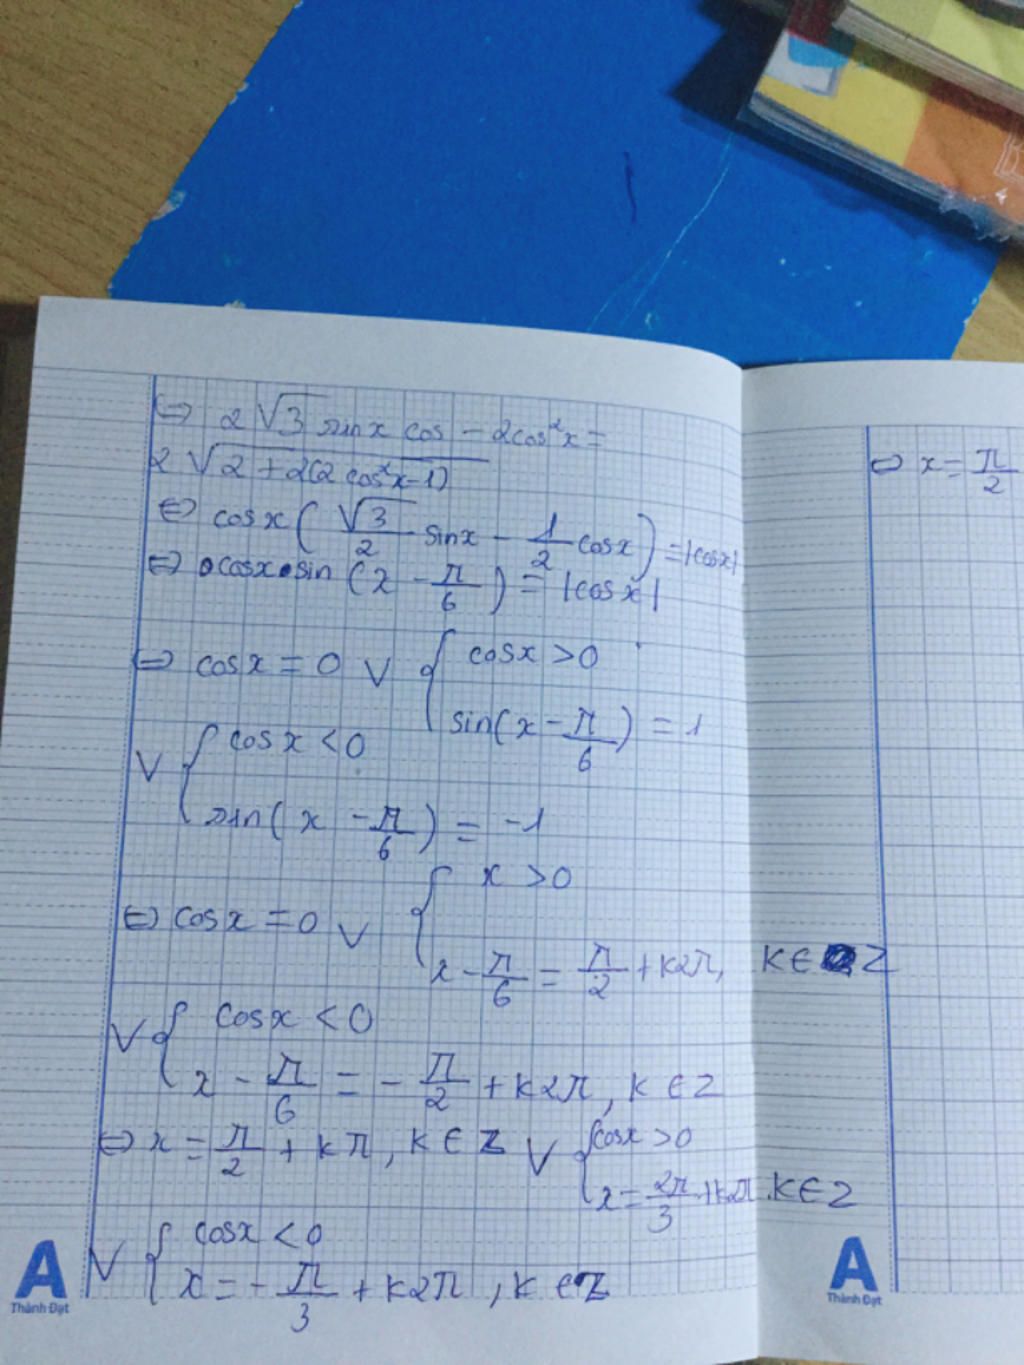 ⇔ 2√3 sinx cos - 2cos²x =
2√(2 + 2(2cos²x-1))
⇔ cosx(√3/2 sinx - 1/2 cosx) = |cosx|
⇔ cosx.sin(x - π/6) = |cosx|
⇔ cosx = 0 ∨ { cosx > 0
sin(x - π/6) = 1
∨ { cosx < 0
sin(x - π/6) = -1
⇔ cosx = 0 ∨ { x > 0
x - π/6 = π/2 + k2π, K ∈ Z
∨ { cosx < 0
x - π/6 = -π/2 + k2π, K ∈ Z
⇔ x = π/2 + kπ, K ∈ Z ∨ { cosx > 0
x = 2π/3 + k2π. K ∈ Z
∨ { cosx < 0
x = -π/3 + k2π, K ∈ Z
A
Thành Đạt
⇔ x = π/2
A
Thành Đạt
4